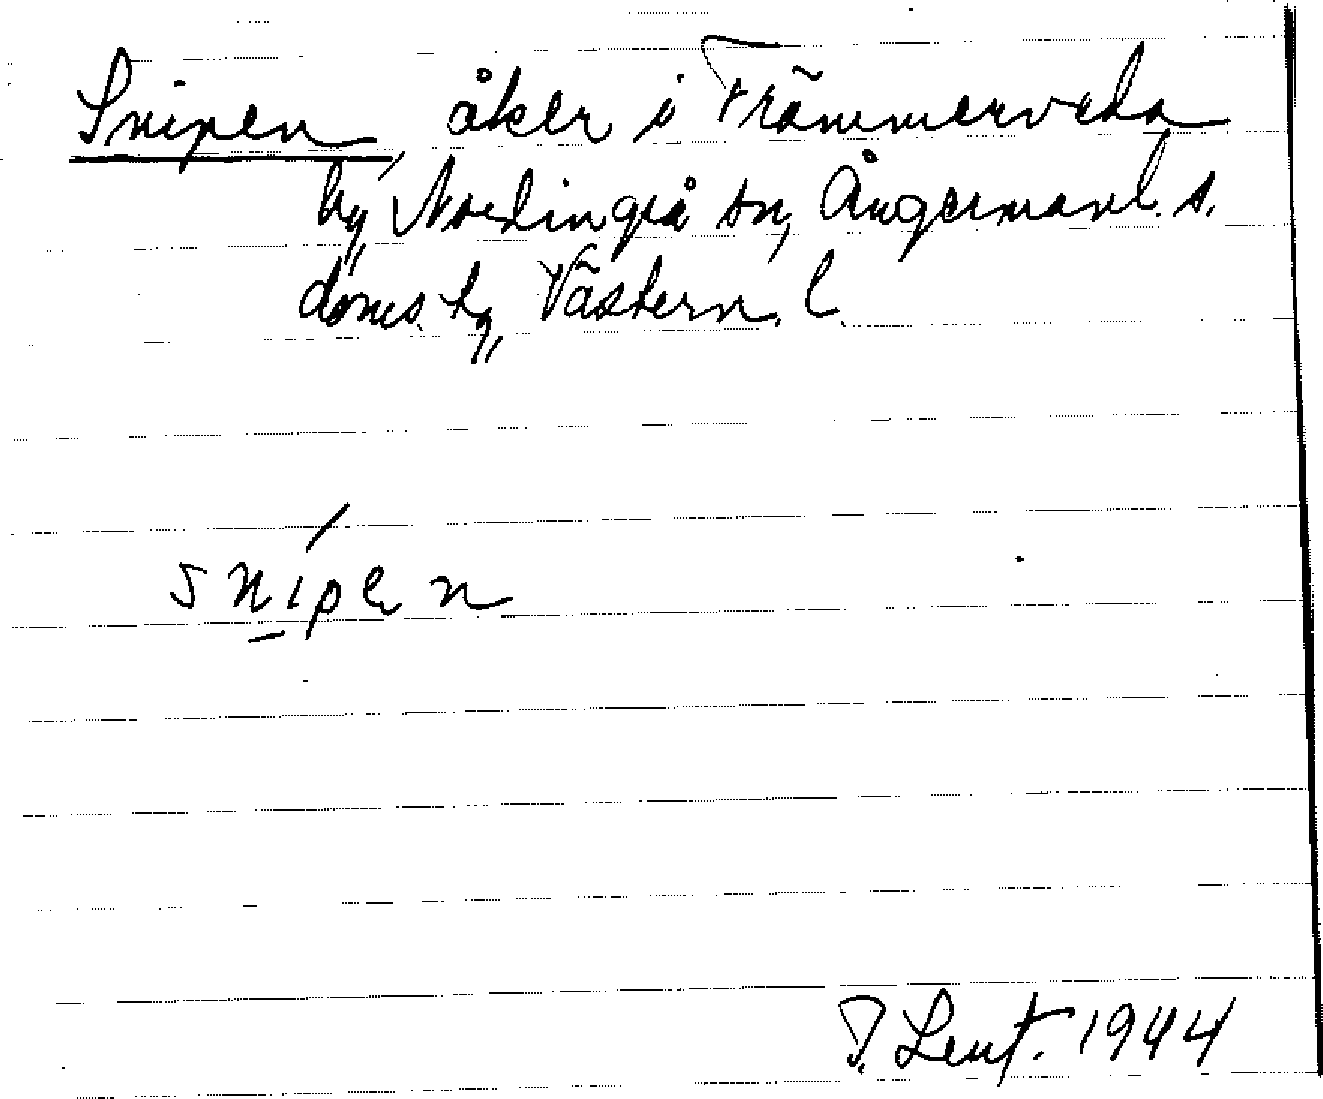 Snipen, åker i Främmerveda
by, Nordingrå sn, Ångermanl. s.
doms. h., Västern. l.
snipen
P. Lent. 1944